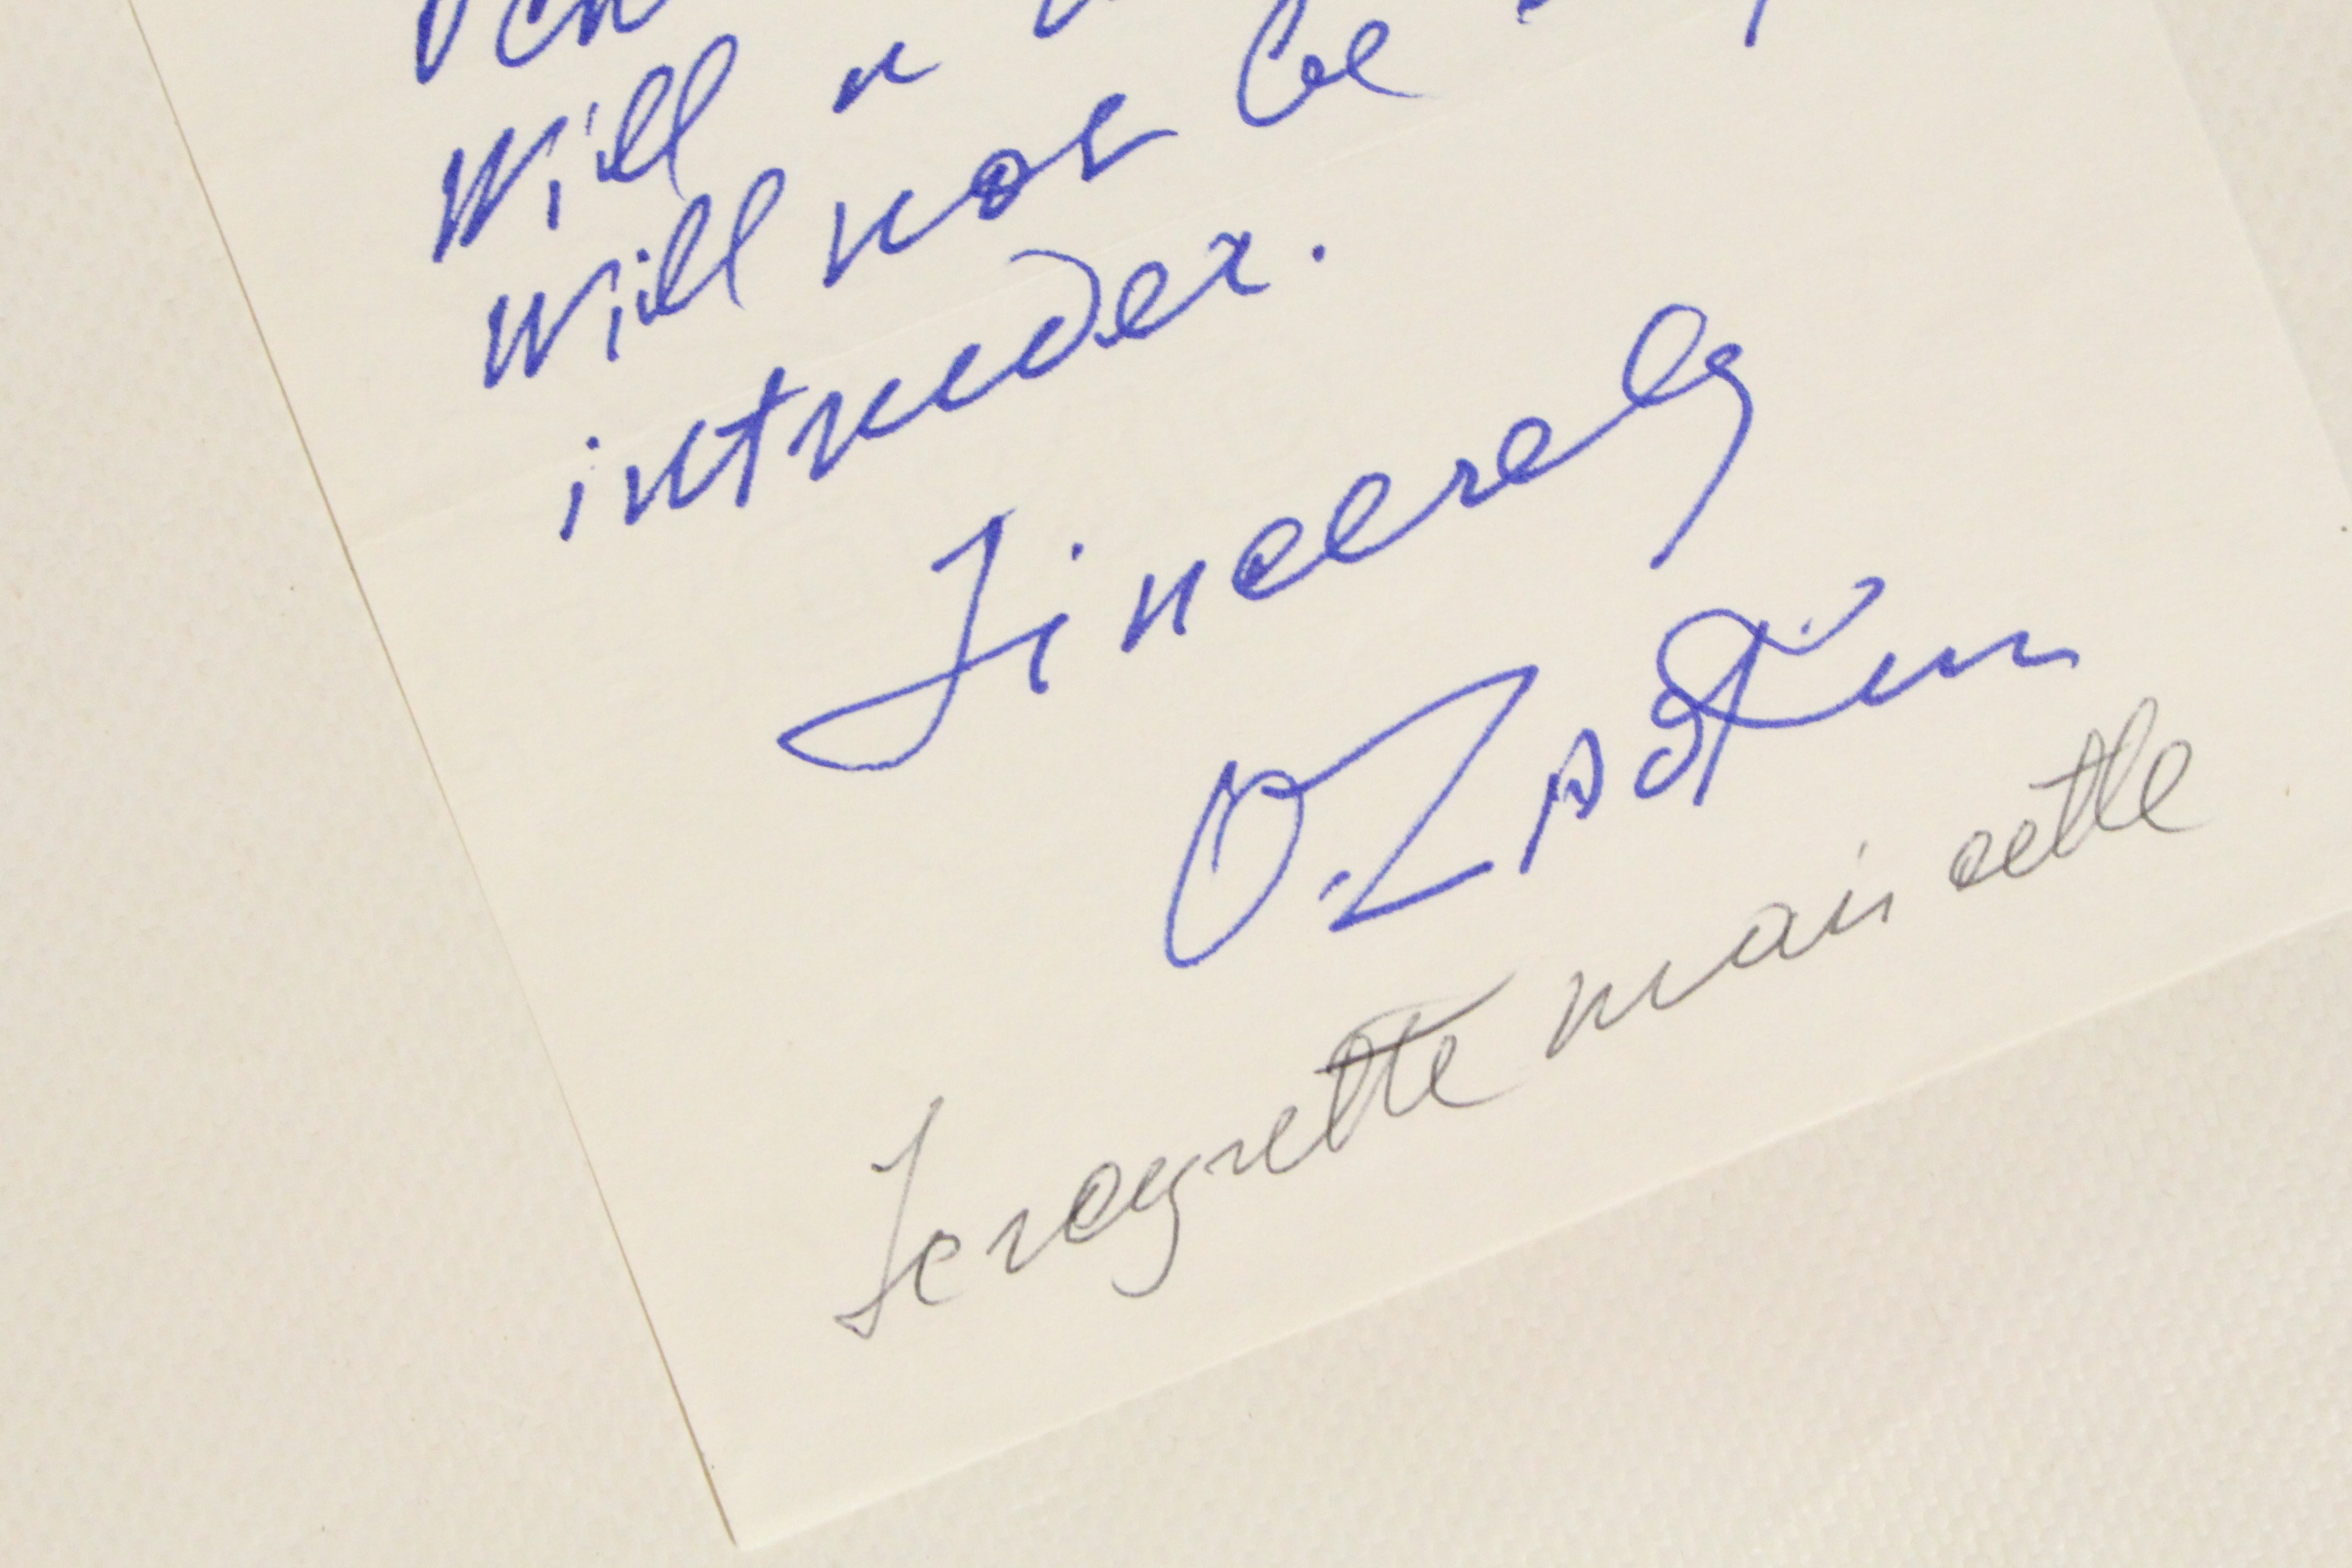 Will
Will not be
intruder.
Sincerely
O. Zadkine
Je regrette mais cette